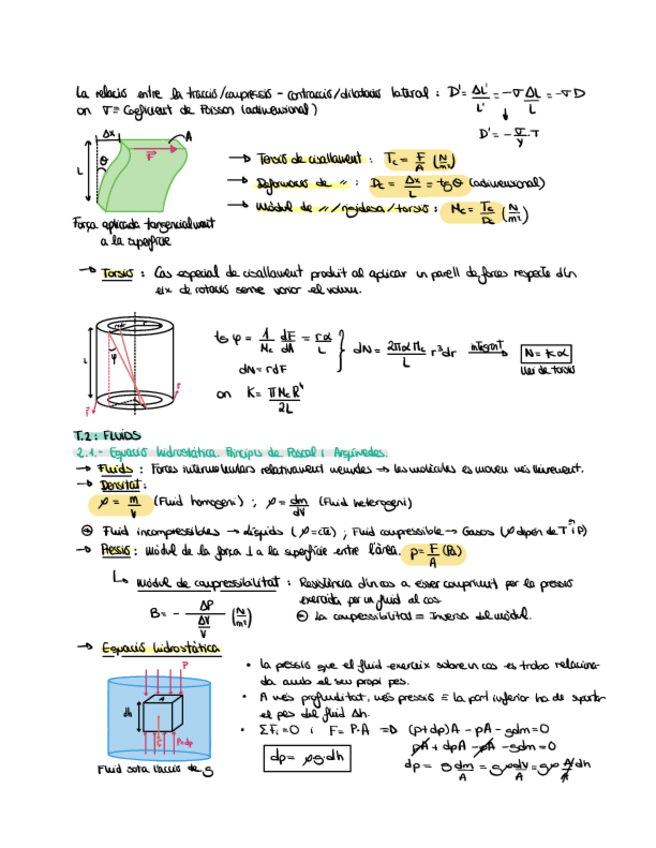 La relació entre la tracció/compressió - contracció/dilatació lateral : D' = ΔL'/L' = -σ ΔL/L = -σ D
on σ ≡ Coeficient de Poisson (adimensional)
D' = - σ/Y · T
Δx
A
F
θ
L
→ Torsió de cisallament : Tc = F/A (N/m²)
→ Deformació de " : Dc = Δx/L = tg θ (adimensional)
→ Mòdul de "/rigidesa/torsió : Mc = Tc/Dc (N/m²)
Força aplicada tangencialment
a la superfície
→ Torsió : Cas especial de cisallament produït al aplicar un parell de forces respecte d'un
eix de rotació sense variar el volum.
L
φ
F
F
tg φ = 1/Mc dF/dA = rα/L } dN = 2πα Mc/L r³dr integrant → N = kα
dN = rdF
Llei de torsió
on K = π Mc R⁴/2L
T.2 : FLUIDS
2.1.- Equació hidrostàtica. Principis de Pascal i Arquímedes.
→ Fluids : Forces intermoleculars relativament menudes ⇒ les molècules es mouen més lliurement.
→ Densitat :
ρ = m/V (Fluid homogeni) ; ρ = dm/dV (Fluid heterogeni)
⊕ Fluid incompressibles → Líquids (ρ = cte) ; Fluid compressible → Gasos (ρ depén de T i P)
→ Pressió : Mòdul de la força ⊥ a la superfície entre l'àrea. p = F/A (Pa)
↳ Mòdul de compressibilitat : Resistència d'un cos a ésser comprimit per la pressió
exercida per un fluid al cos.
B = - ΔP/(ΔV/V) (N/m²)
⊖ La compressibilitat = Inversa del mòdul.
→ Equació hidrostàtica
P
A
dh
P+dp
Fluid sota l'acció de g
• La pressió que el fluid exerceix sobre un cos es troba relaciona-
da amb el seu propi pes.
• A més profunditat, més pressió ≡ La part inferior ha de suportar
el pes del fluid Δh.
• ΣFi = 0 i F = P·A ⇒ (p+dp)A - pA - gdm = 0
pA + dpA - pA - gdm = 0
dp = ρgdh
dp = gdm/A = gρdv/A = gρ A/A dh